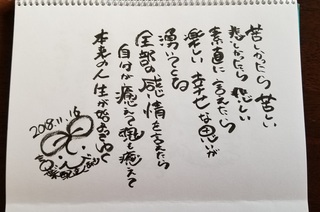 苦しかったら 苦しい
悲しかったら 悲しい
素直に言えたら
楽しい 幸せな思いが
湧いてくるね
全部の感情を言えたら
自分が癒えて 魂も癒えて
本来の人生が始まるね
2018.11.16